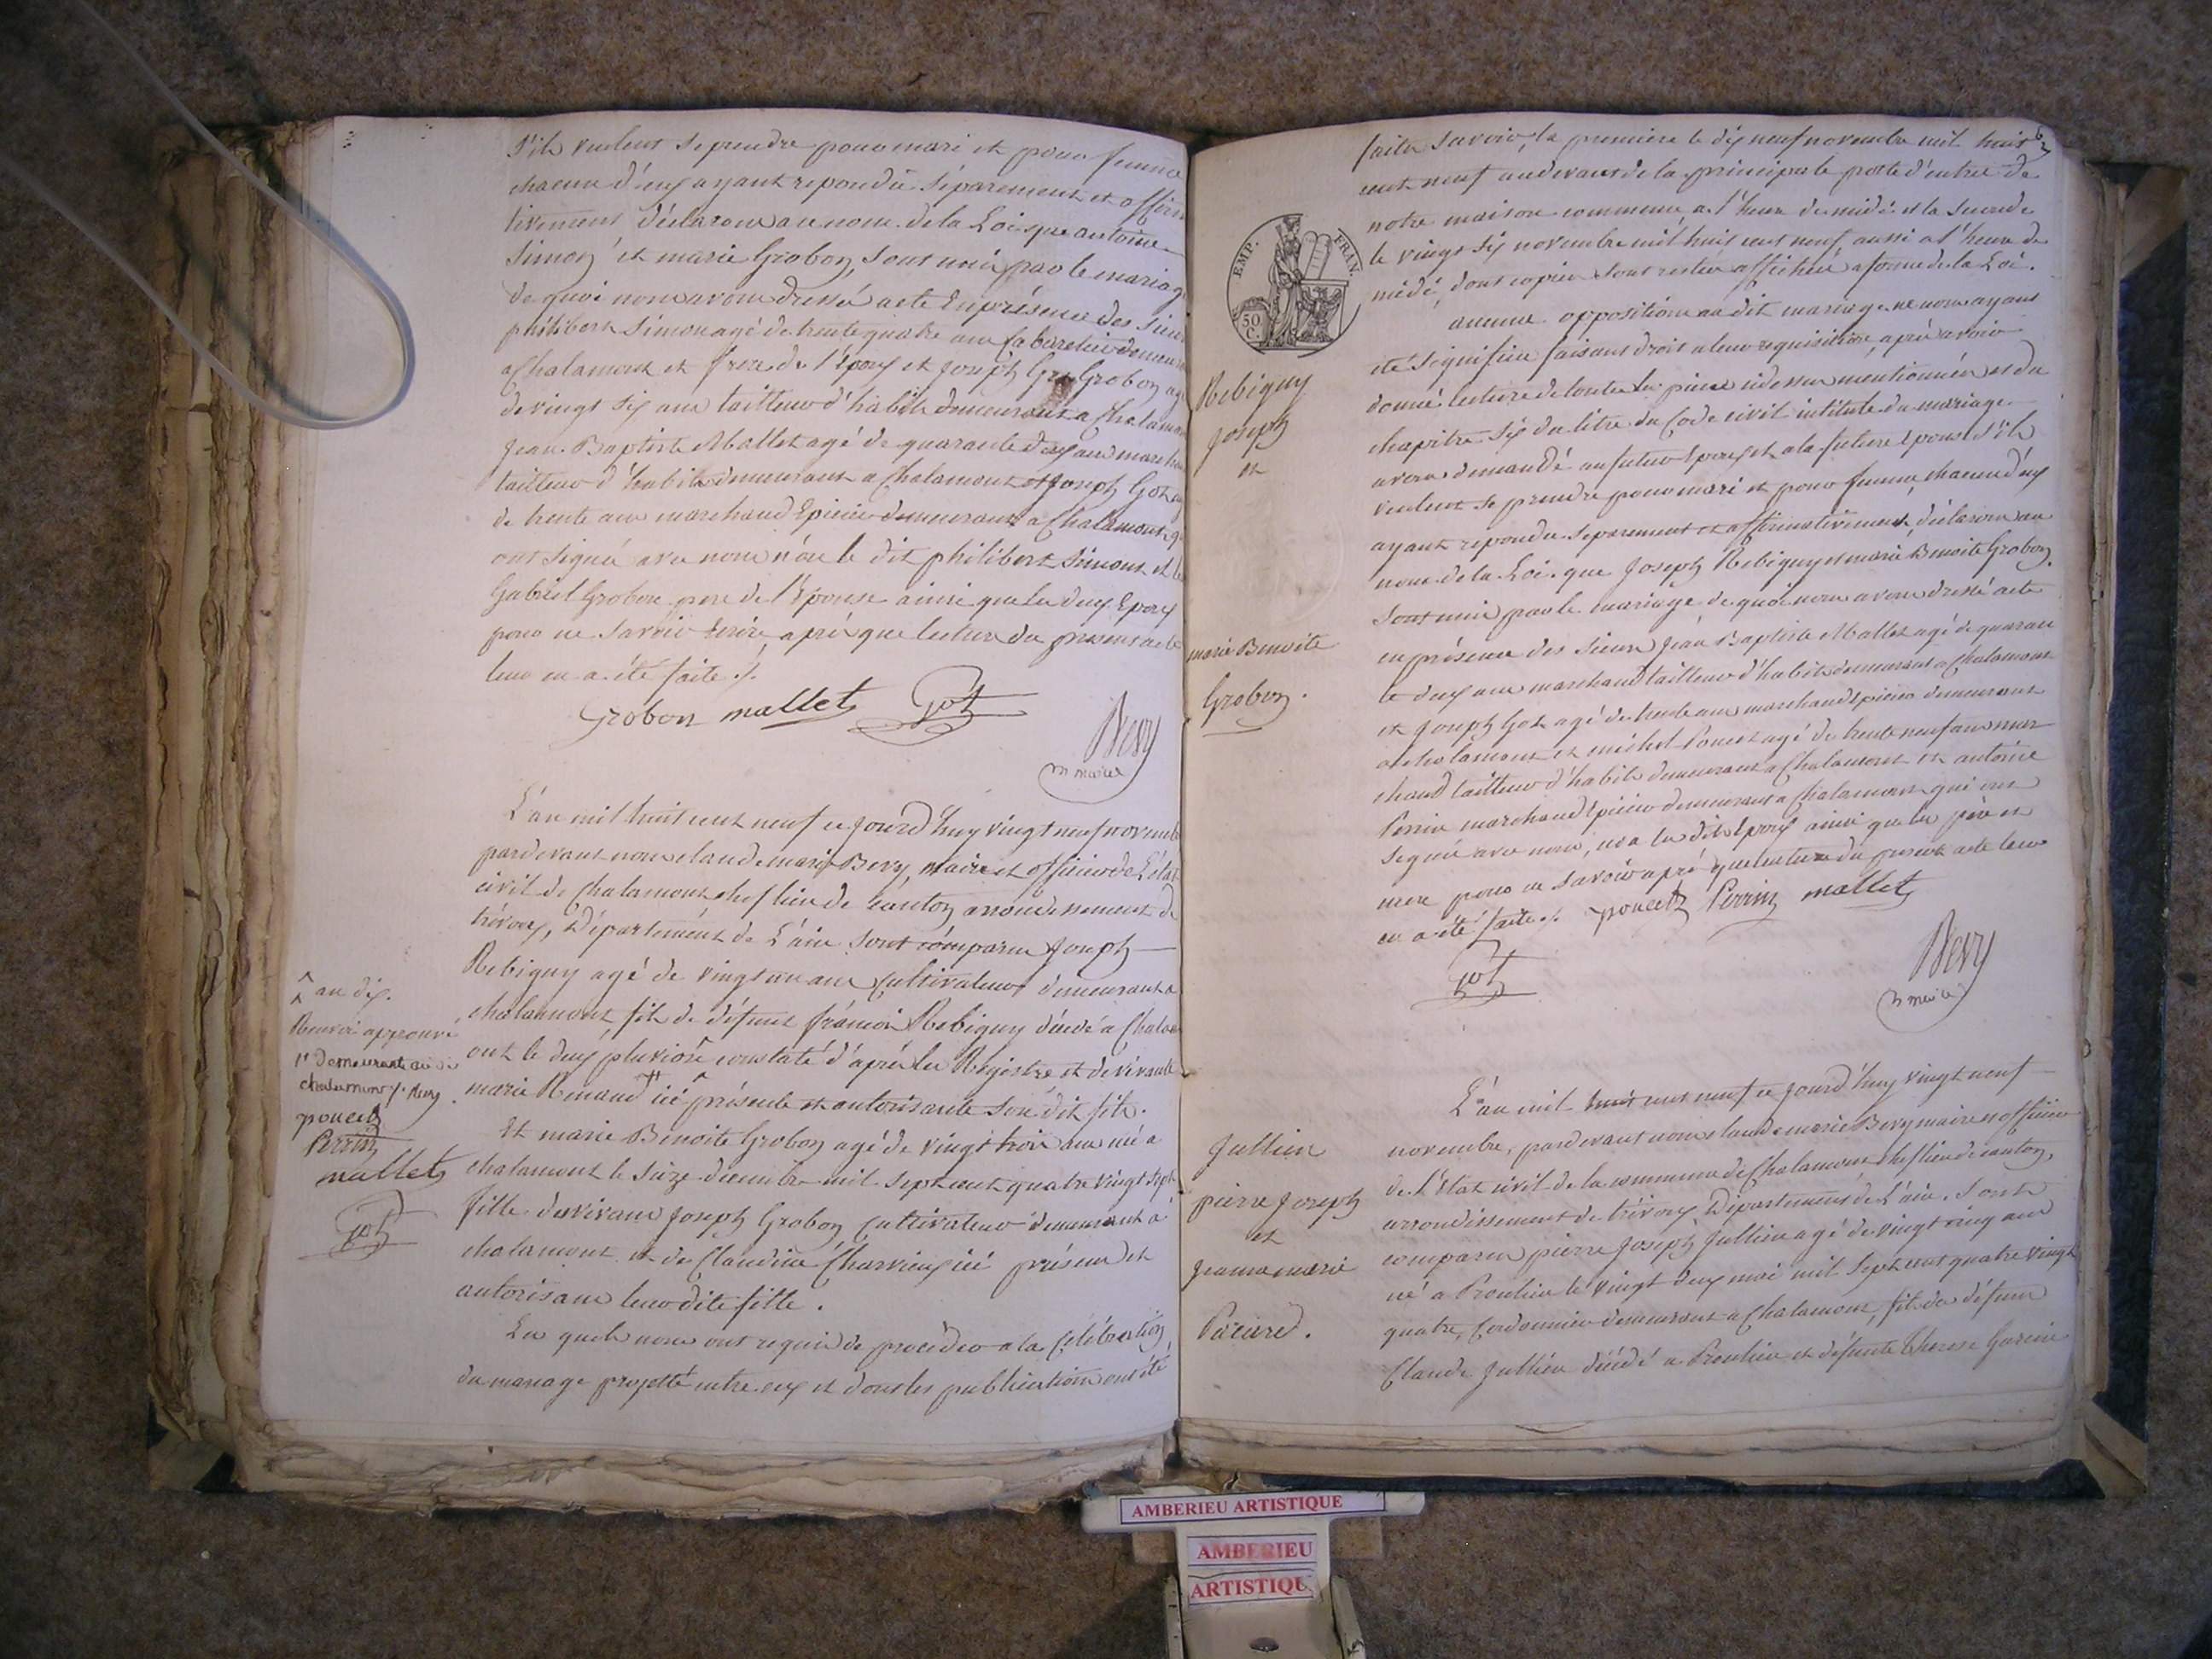 s'ils veulent se prendre pour mari et pour femme
chacun d'eux ayant repondu séparement et affirma
tivement déclarons au nom de la Loi que antoine
Simon et marie Grobon, sont unis par le mariage
de quoi nous avons dressé acte En présence des sieurs
philibert Simon agé de trente quatre ans Cabaretier demeurant
a Chalamont et frere de l'époux et joseph Grobon agé
de vingt six ans tailleur d'habits demeurant a Chalamont
jean Baptiste Mallet agé de quarante deux ans marchand
tailleur d'habits demeurant a Chalamont et joseph Got agé
de trente ans marchand Epicier demeurant a Chalamont qui
ont signé avec nous non le dit philibert Simon et le
Gabriel Grobon pere de l'épouse ainsi que les deux Epoux
pour ne savoir écrire, aprés que lecture du present acte
leur en a été faite ./.
Grobon mallet Got
Bevy
maire
L'an mil huit cent neuf ce jourd'huy vingt neuf novembre
pardevant nous claude marie Bevy, maire et officier de L'état
civil de Chalamont chef lieu de canton arrondissement de
trévoux, Département de L'ain. sont comparu joseph
Rebiguy agé de vingt un ans Cultivateur demeurant a
chalamont, fils de défunt françois Rebiguy décédé a Chalam
ont le deux pluviose constaté d'aprés les Registre et de vivante
marie Renaud icÿ présente et autorisante son dit fils.
^ an dix.
Renvoi approuvé
demeurante
chalamont ./. Bevy
poncet
Perrin
mallet
Got
Et marie Benoite Grobon agé de vingt trois ans né a
chalamont le seize decembre mil sept cent quatre vingt sept
fille de vivans joseph Grobon Cultivateur demeurant a
chalamont et de Claudine Charvieux icÿ présens et
autorisans leur dite fille.
Les quels nous ont requis de procéder a la Célébration
du mariage projetté entre eux et dont les publications ont été
EMP. FRAN.
50 C.
Rebiguy
joseph
et
marie Benoite
Grobon.
faites savoir, la premiere le dix neuf novembre mil huit
cent neuf au devant de la principale porte d'entrée de
notre maison commune, a l'heure de midi et la Seconde
le vingt six novembre mil huit cent neuf, aussi a l'heure de
midi, dont copies sont restées affichées a forme de la Loi.
aucune opposition au dit mariage ne nous ayant
été signifiée faisant droit a leur requisition, aprés avoir
donné lecture de toutes les pieces cidessus mentionnées et du
chapitre six du titre du Code civil intitulé du mariage
avons demandé au futur Epoux et a la future Epouse s'ils
veulent se prendre pour mari et pour femme, chacun d'eux
ayant repondu séparement et affirmativement, déclarons au
nom de la Loi. que joseph Rebiguy et marie Benoite Grobon
sont unis par le mariage de quoi nous avons dressé acte
en présence des sieurs jean Baptiste Mallet agé de quaran
te deux ans marchand tailleur d'habits demeurant a Chalamont
et joseph Got agé de trente ans marchand Epicier demeurant
a chalamont et michel Poncet agé de trente neuf ans mar
chand tailleur d'habits demeurant a Chalamont et antoine
Perrin marchand Epicier demeurant a Chalamont qui ont
signé avec nous, non les dits Epoux ainsi que les pere et
mere pour ne savoir aprés que lecture du present acte leur
en a été faite ./. poncet Perrin mallet
Got
Bevy
maire
Jullien
pierre joseph
et
jeanne marie
Pacard.
L'an mil huit cent neuf ce jourd'huy vingt neuf
novembre, pardevant nous claude marie Bevy maire et officier
de L'état civil de la commune de Chalamont chef lieu de canton,
arrondissement de trévoux, Département de L'ain. Sont
comparu pierre joseph jullien agé de vingt cinq ans
né a Proulieu le vingt deux mai mil sept cent quatre vingt
quatre, Cordonnier demeurant a Chalamont, fils de défunt
Claude jullien décédé a Proulieu et défunte therese Garin